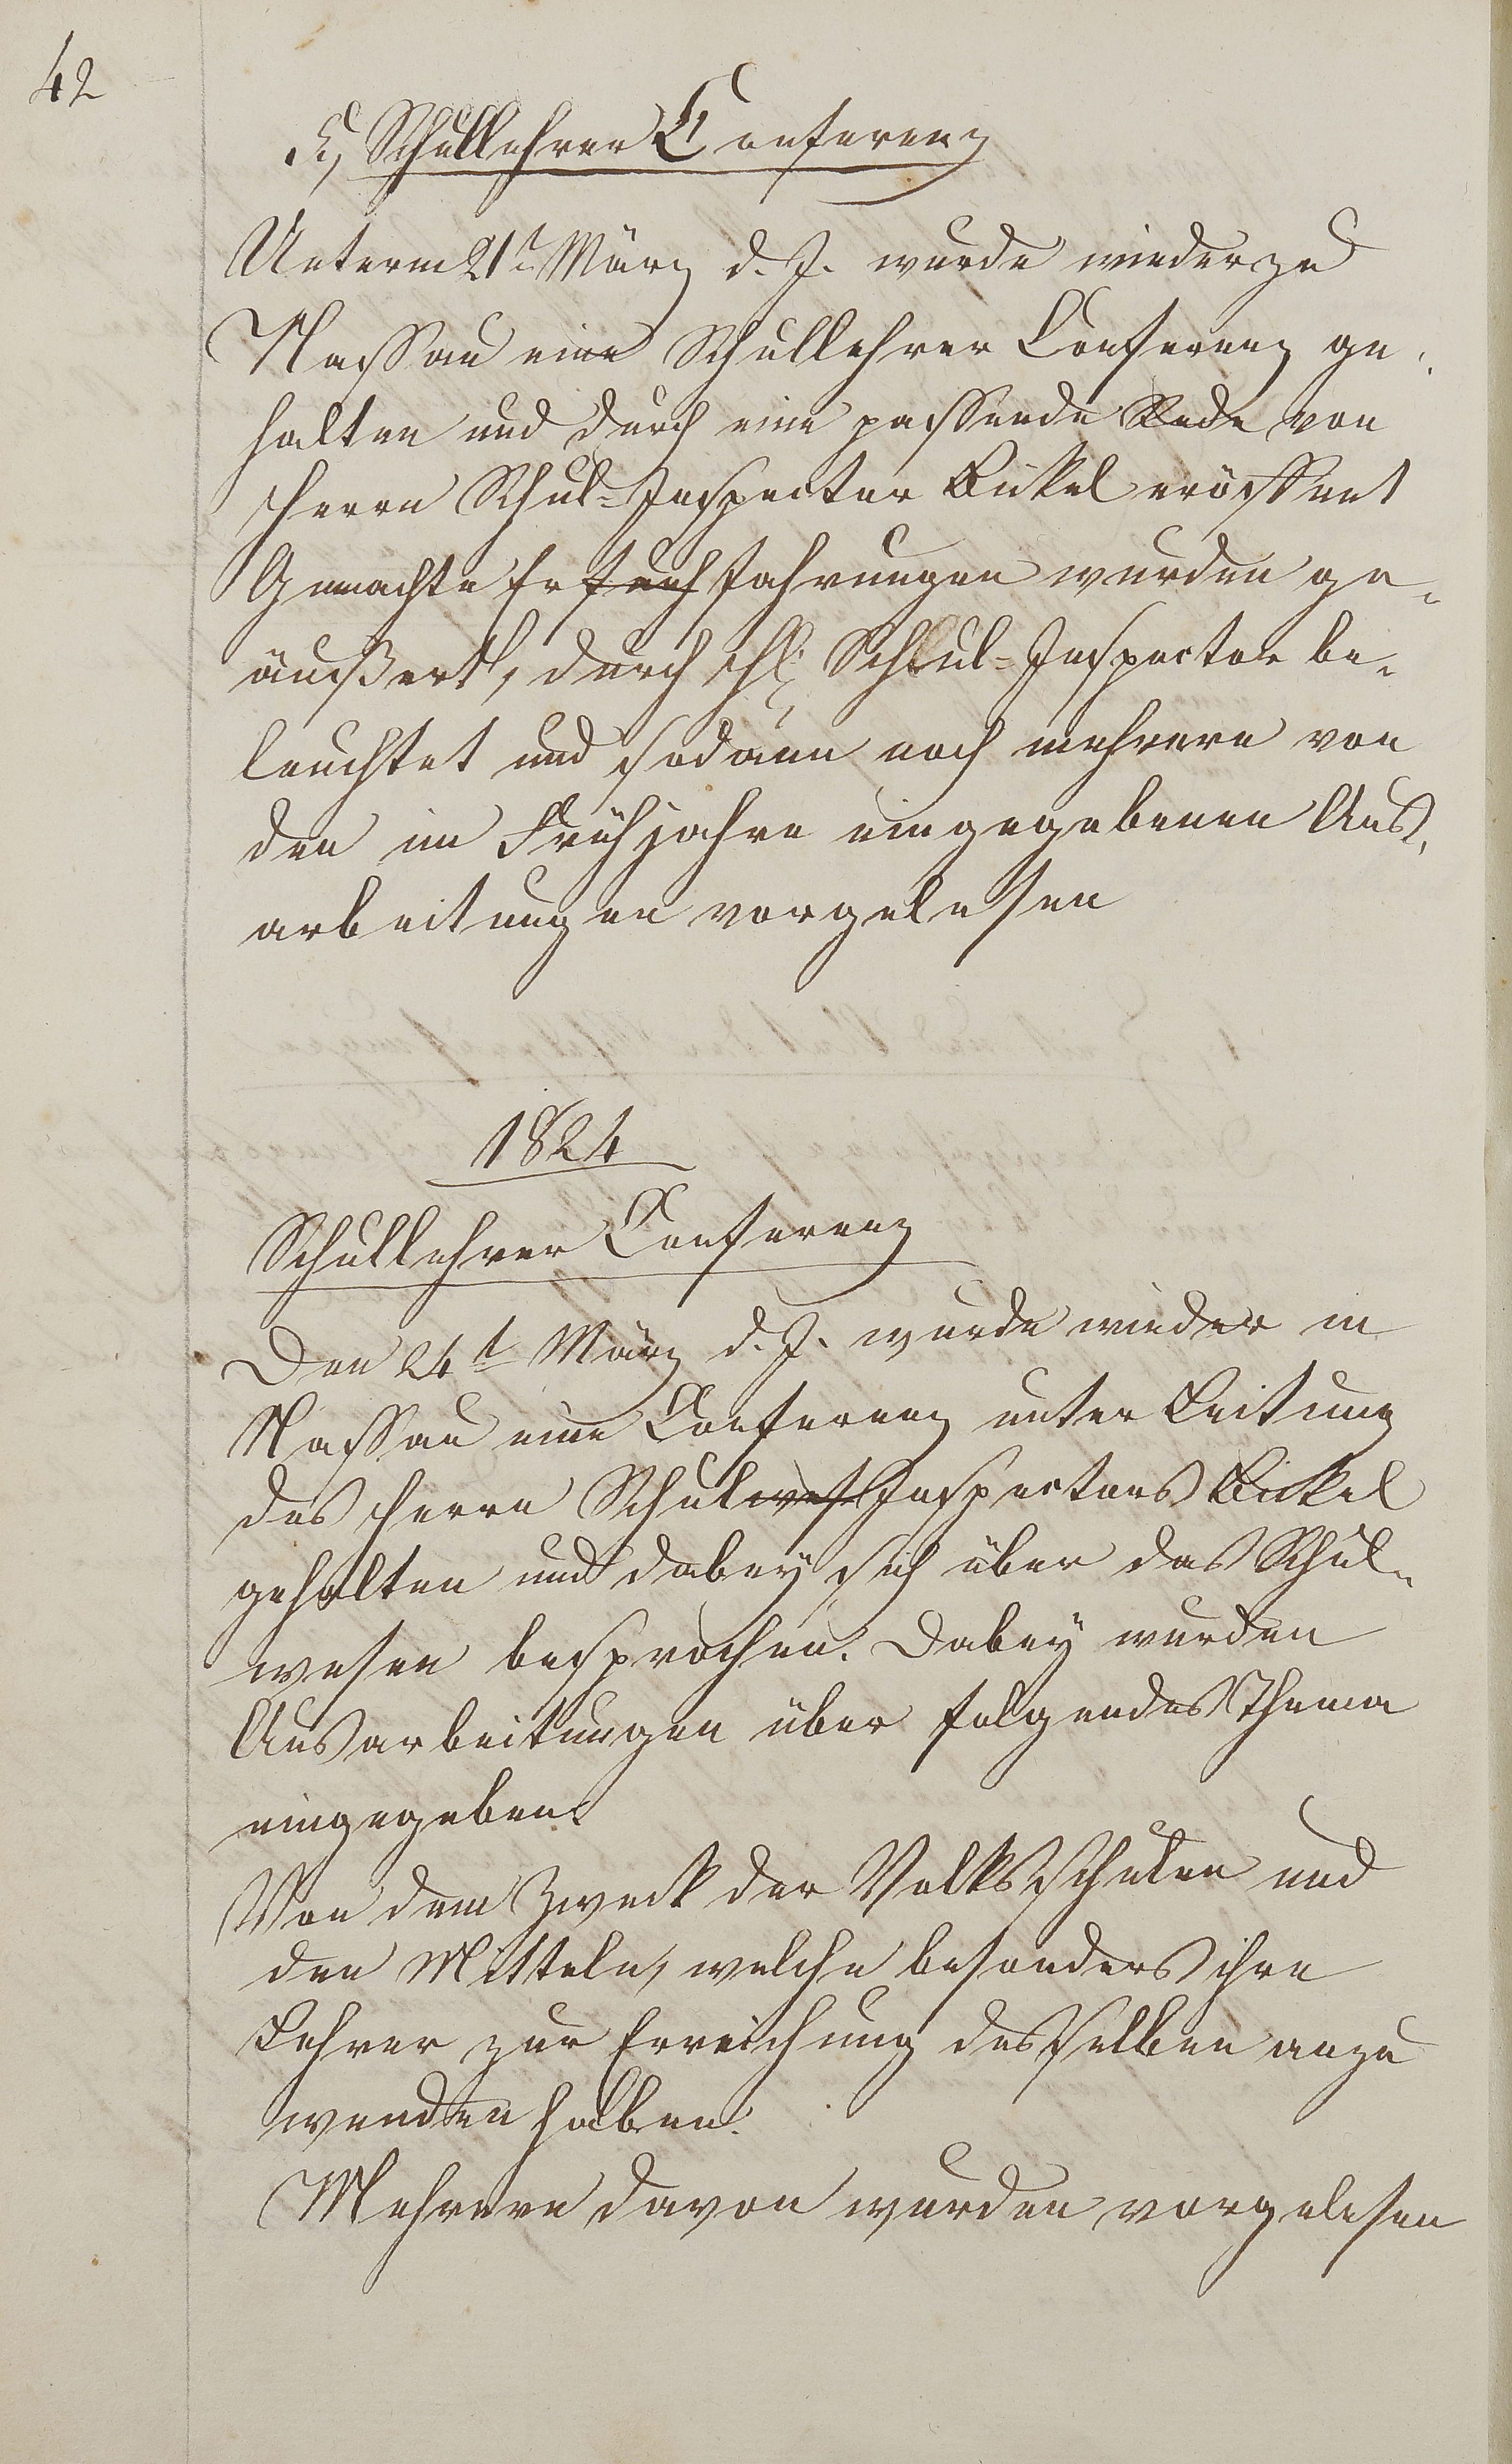 42
K, Schullehrer Conferenz
Unterm 21t März d. J. wurde wieder zu
Nassau eine Schullehrer Conferenz ge-
halten und durch eine passende Rede von
Herrn Schul-Inspector Bickel eröffnet
Gemachte Erfahrungen wurden ge-
äußert, durch H. Schul-Inspector be-
leuchtet und sodann noch mehrere von
den im Frühjahre eingegebenen Aus-
arbeitungen vorgelesen
1824
Schullehrer Conferenz
Den 24t März d. J. wurde wieder in
Nassau eine Conferenz unter Leitung
des Herrn Schulwes Inspectors Bickel
gehalten und dabey sich über das Schul-
wesen besprochen. Dabey wurden
Ausarbeitungen über folgendes Thema
eingegeben:
Von dem Zweck der Volksschulen und
den Mitteln, welche besonders ihre
Lehrer zur Erreichung desselben anzu
wenden haben.
Mehrere davon wurden vorgelesen